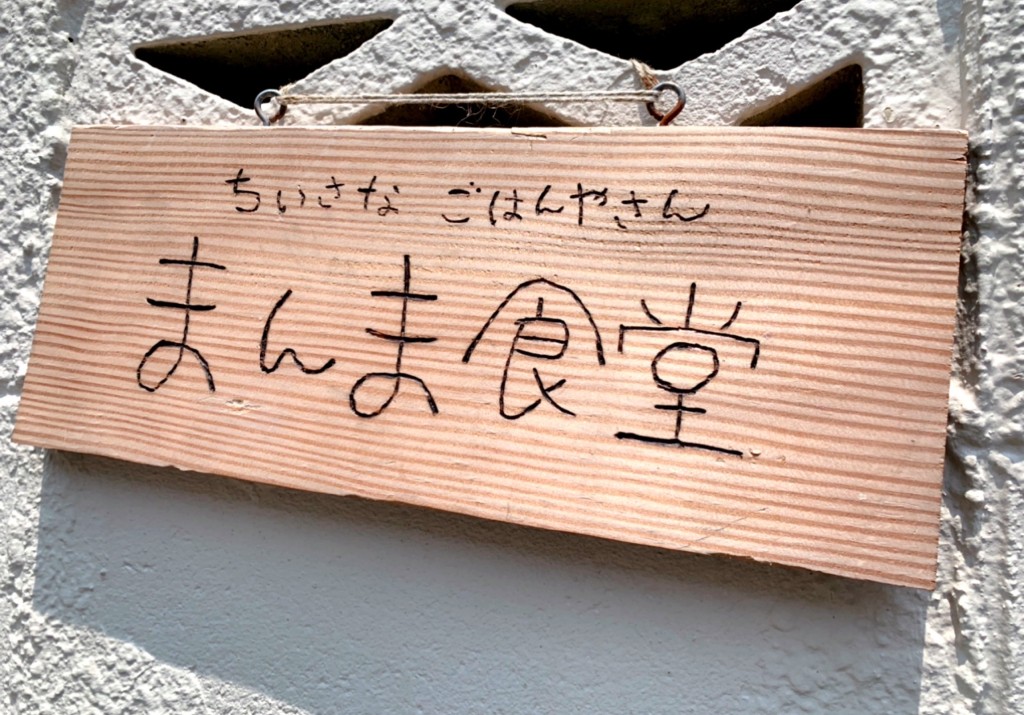 ちいさな ごはんやさん
まんま食堂